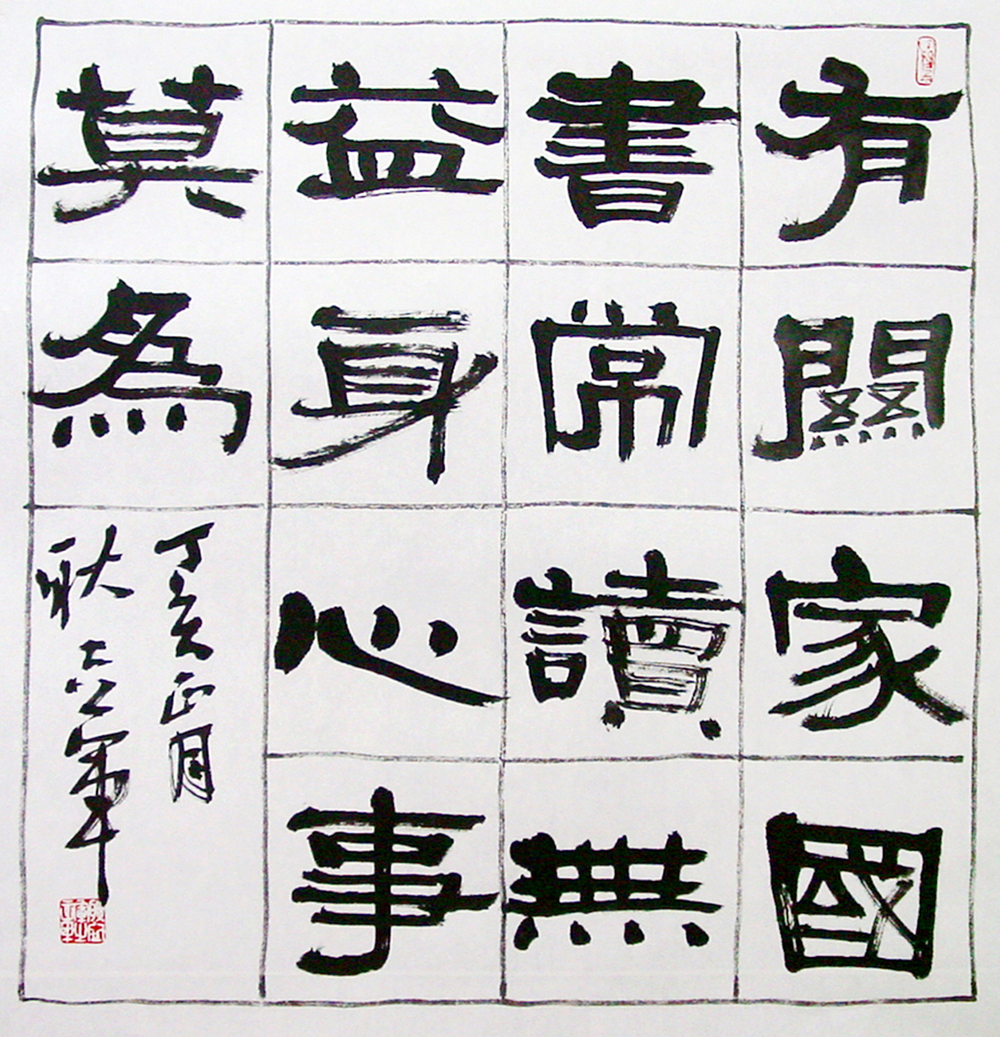 有關家國
書常讀無
益身心事
莫為
丁亥正月
秋立軍